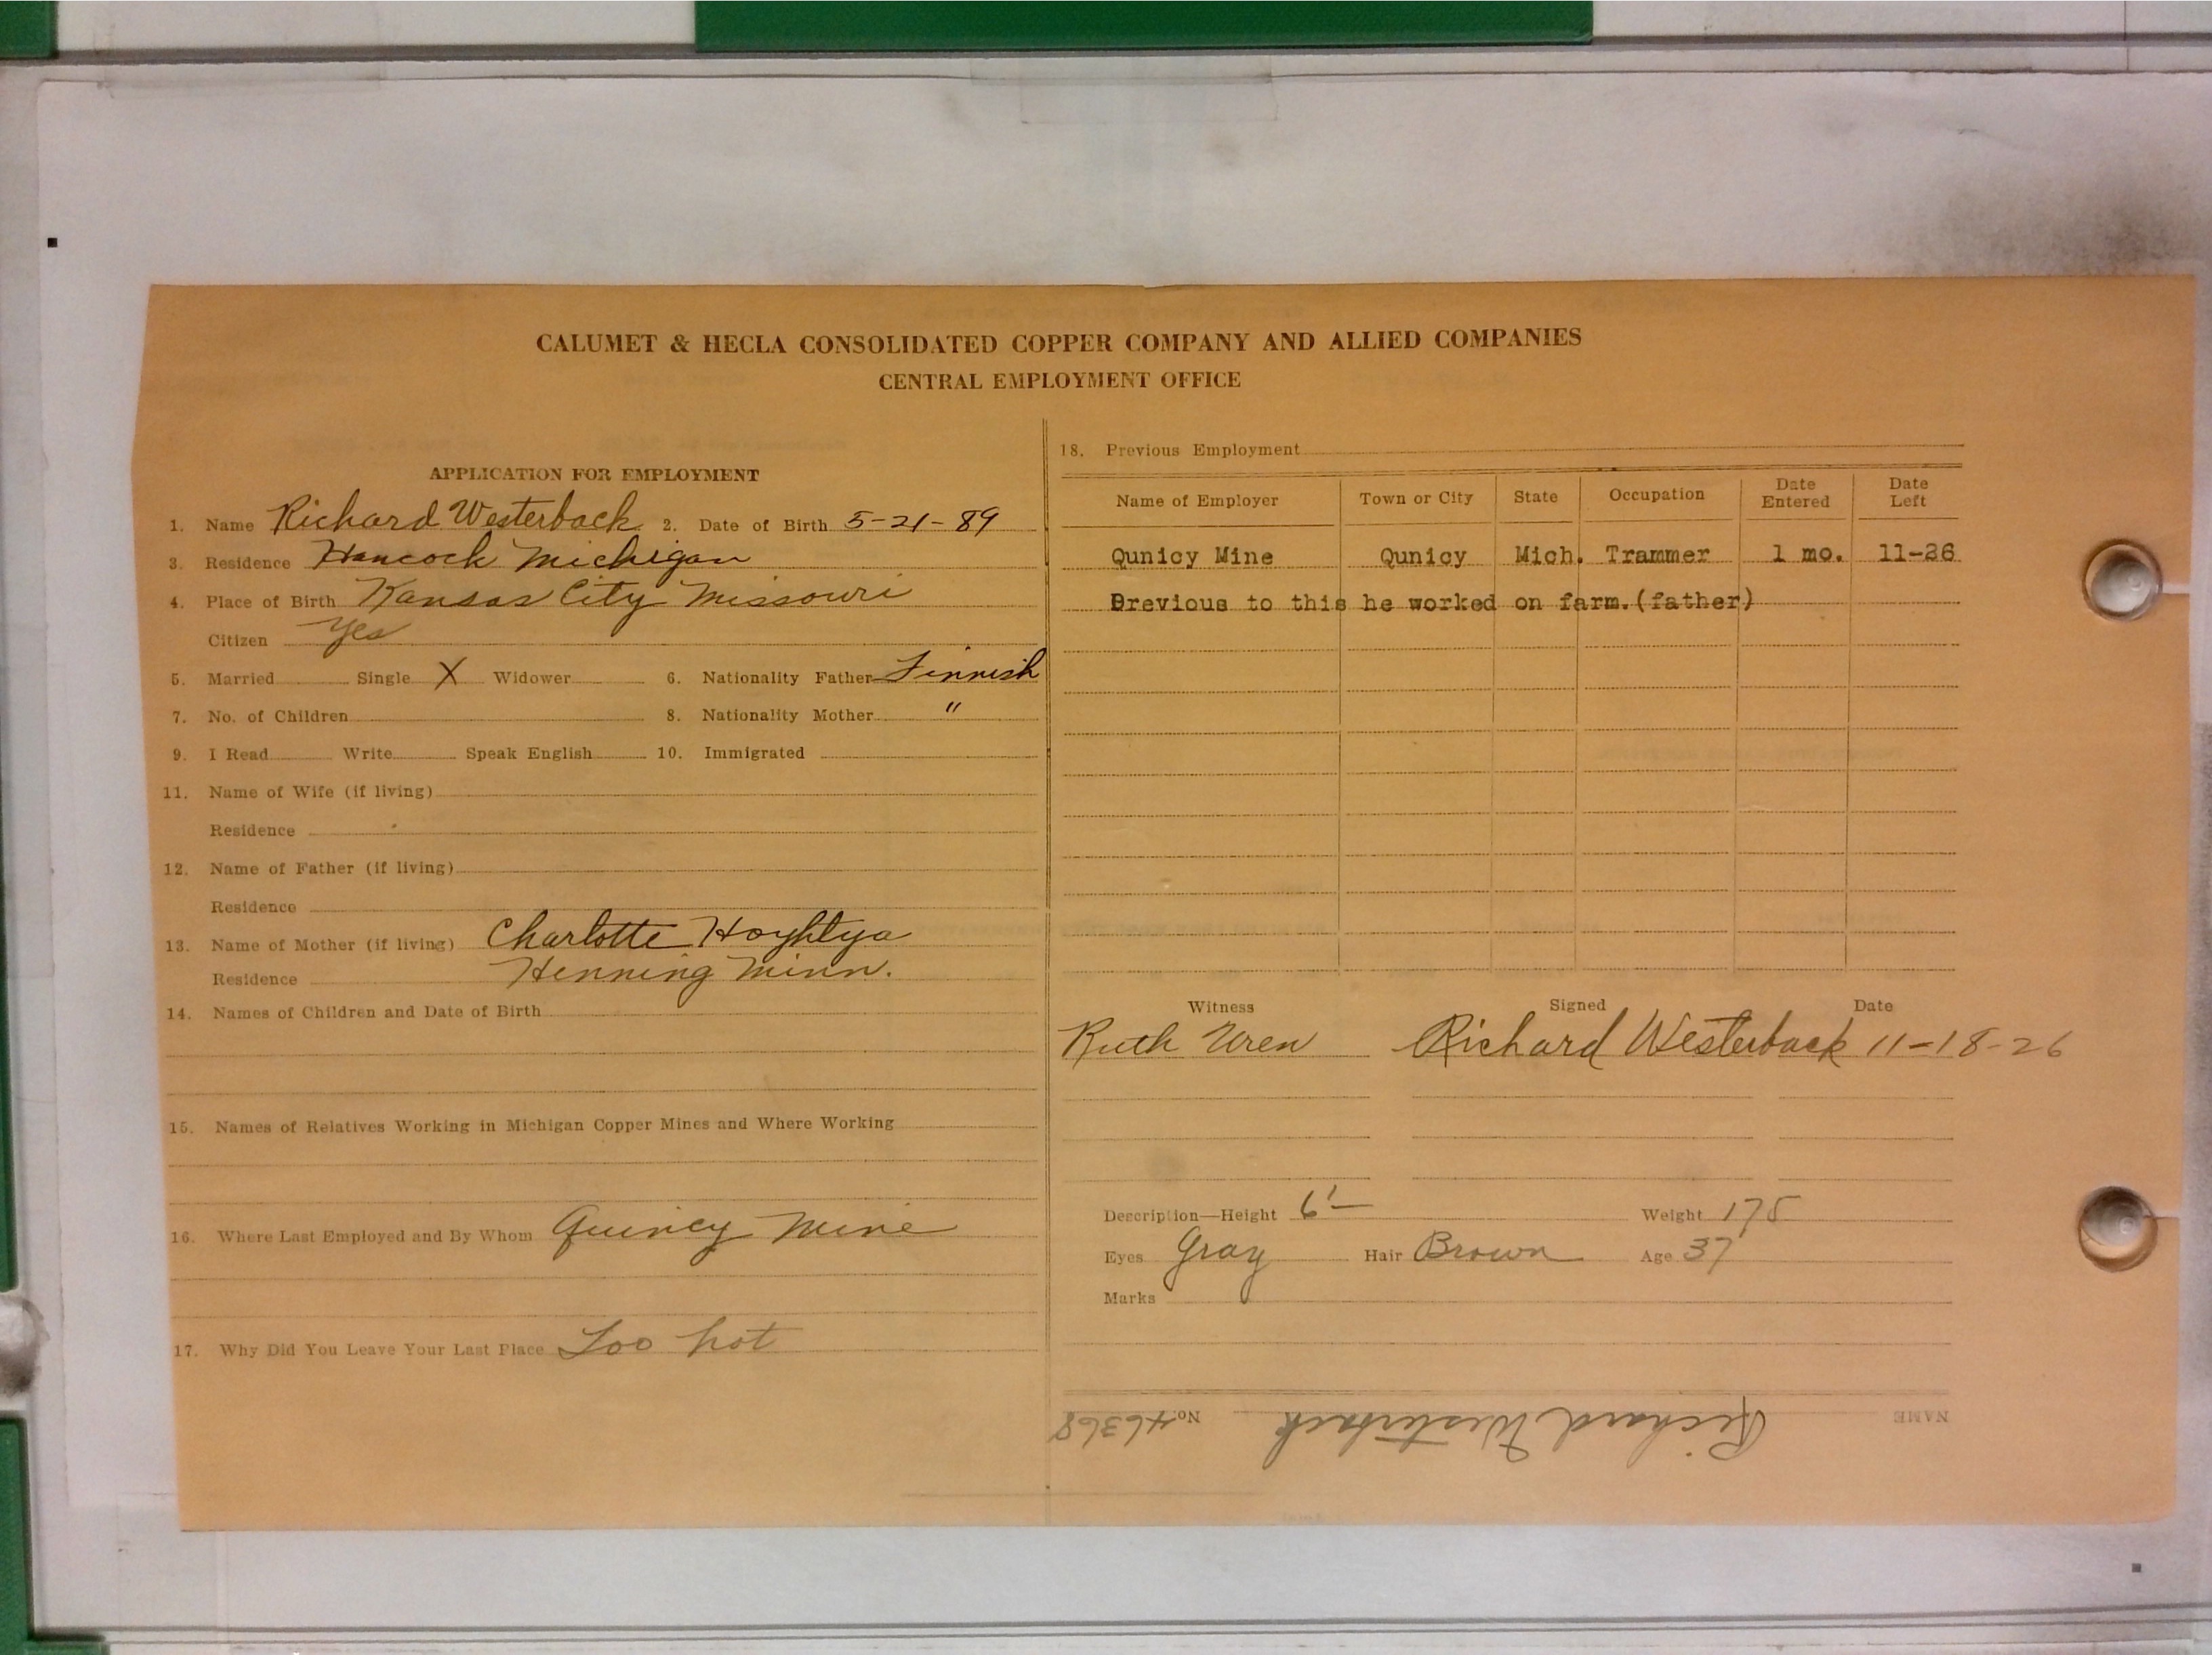 CALUMET & HECLA CONSOLIDATED COPPER COMPANY AND ALLIED COMPANIES
CENTRAL EMPLOYMENT OFFICE
APPLICATION FOR EMPLOYMENT
1. Name Richard Westerback 2. Date of Birth 5-21-89
3. Residence Hancock Michigan
4. Place of Birth Kansas City Missouri
Citizen Yes
5. Married Single X Widower 6. Nationality Father Finnish
7. No. of Children 8. Nationality Mother "
9. I Read Write Speak English 10. Immigrated
11. Name of Wife (if living)
Residence
12. Name of Father (if living)
Residence
13. Name of Mother (if living) Charlotte Hoyhtya
Residence Henning Minn.
14. Names of Children and Date of Birth
15. Names of Relatives Working in Michigan Copper Mines and Where Working
16. Where Last Employed and By Whom Quincy Mine
17. Why Did You Leave Your Last Place Too hot
18. Previous Employment
Name of Employer Town or City State Occupation Date Entered Date Left
Qunicy Mine Qunicy Mich. Trammer 1 mo. 11-26
Previous to this he worked on farm.(father)
Witness Signed Date
Ruth Uren Richard Westerback 11-18-26
Description—Height 6'– Weight 175
Eyes Gray Hair Brown Age 37
Marks
NAME Richard Westerback No. 46368